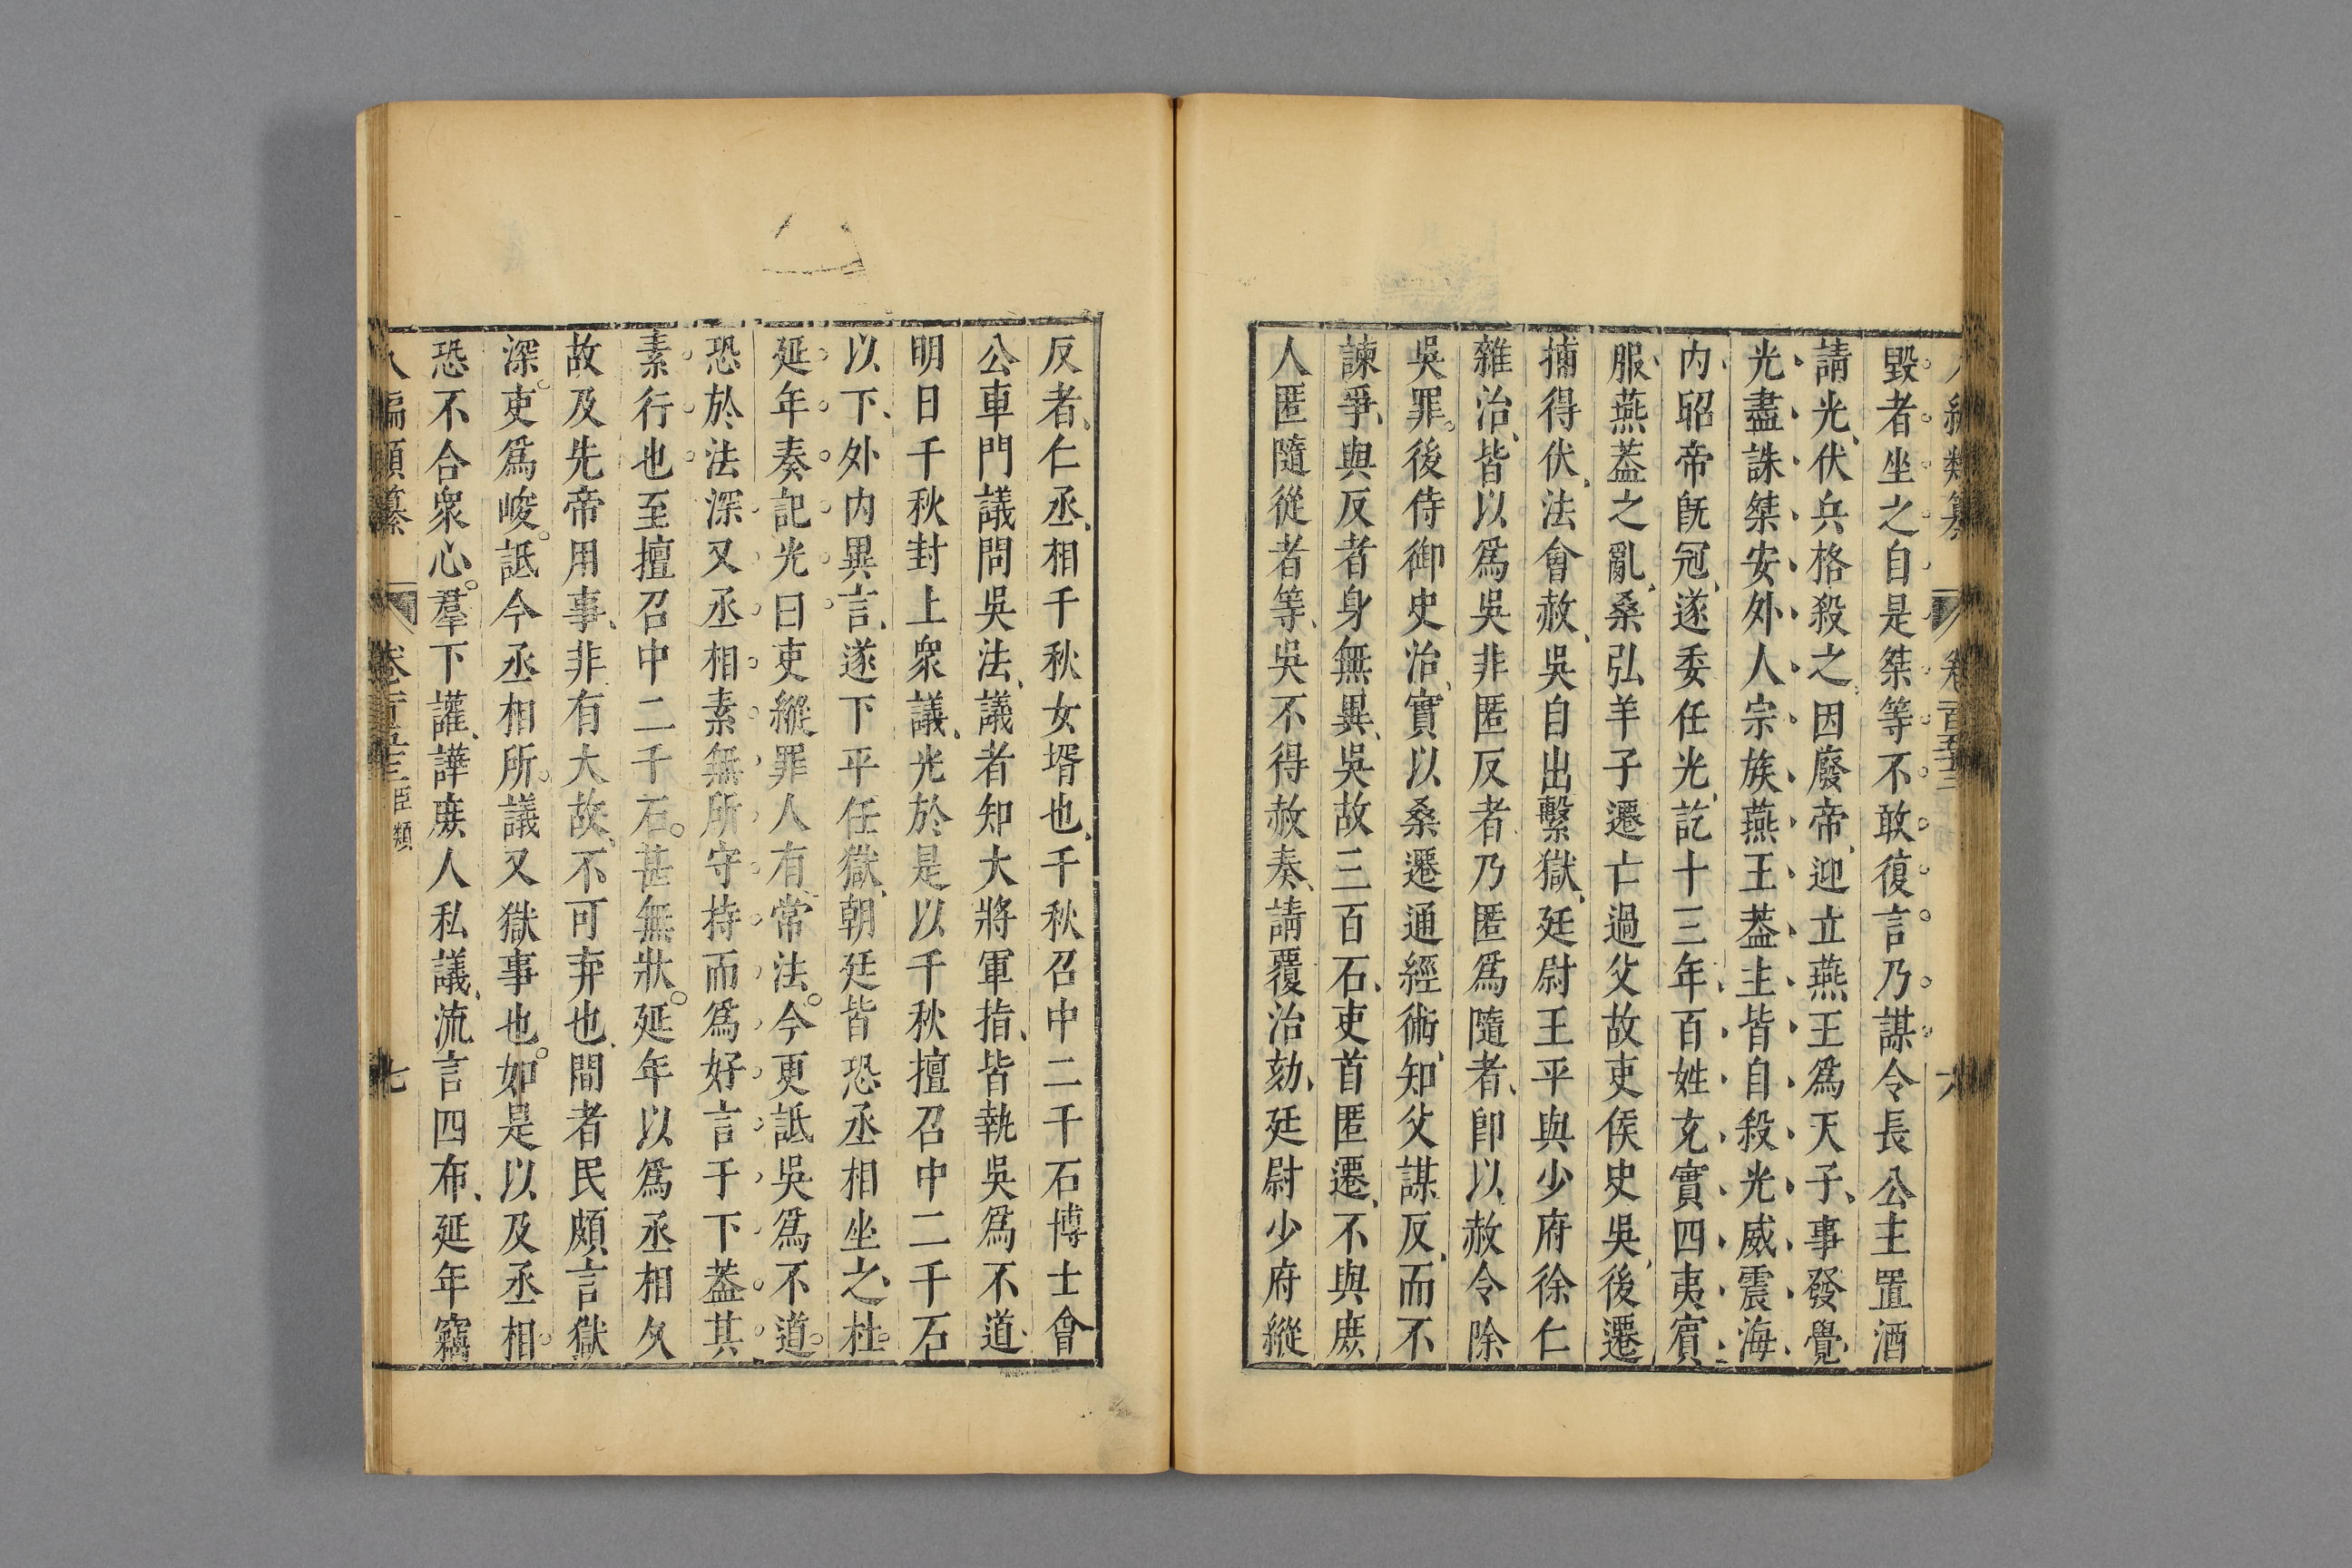 八編類纂 卷百五十三 六
毀者坐之自是桀等不敢復言乃謀令長公主置酒
請光伏兵格殺之因廢帝迎立燕王爲天子事發覺
光盡誅桀安外人宗族燕王葢主皆自殺光威震海
内昭帝旣冠遂委任光訖十三年百姓充實四夷賓
服燕葢之亂桑弘羊子遷亡過父故吏侯史吳後遷
捕得伏法會赦吳自出繫獄廷尉王平與少府徐仁
雜治皆以爲吳非匿反者乃匿爲隨者卽以赦令除
吳罪後侍御史治實以桑遷通經術知父謀反而不
諫爭與反者身無異吳故三百石吏首匿遷不與庶
人匿隨從者等吳不得赦奏請覆治劾廷尉少府縱
反者仁丞相千秋女壻也千秋召中二千石博士會
公車門議問吳法議者知大將軍指皆執吳爲不道
明日千秋封上衆議光於是以千秋擅召中二千石
以下外内異言遂下平任獄朝廷皆恐丞相坐之杜
延年奏記光曰吏縱罪人有常法今更詆吳爲不道
恐於法深又丞相素無所守持而爲好言于下葢其
素行也至擅召中二千石甚無狀延年以爲丞相久
故及先帝用事非有大故不可弃也間者民頗言獄
深吏爲峻詆今丞相所議又獄事也如是以及丞相
恐不合衆心羣下讙譁庶人私議流言四布延年竊
八編類纂 卷百五十三 臣類 七